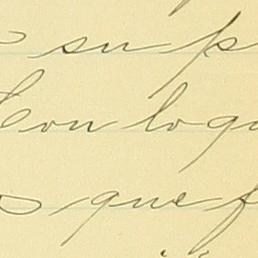 su p
Con logu
s que f